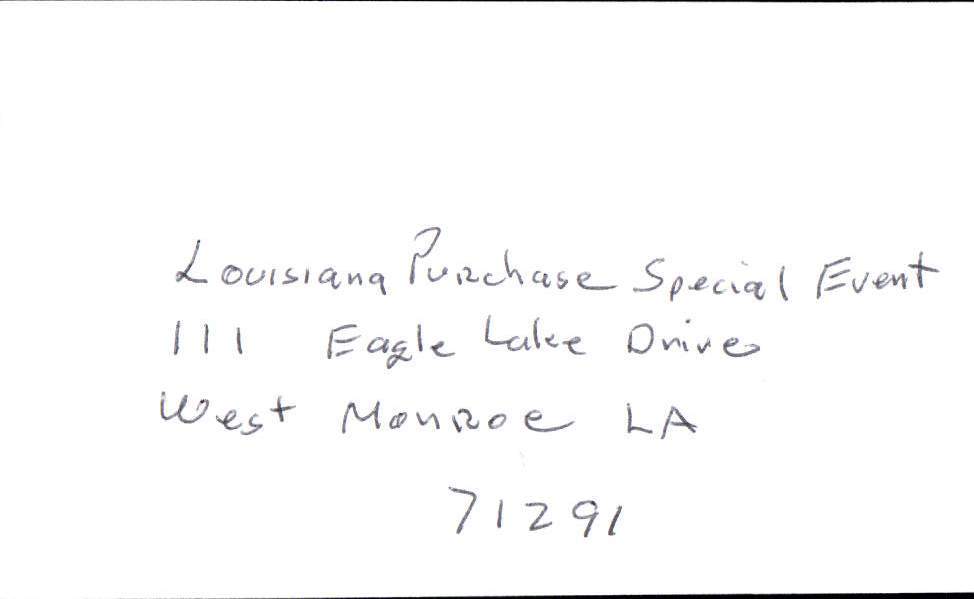 Louisiana Purchase Special Event
111 Eagle Lake Drive
West Monroe LA
71291